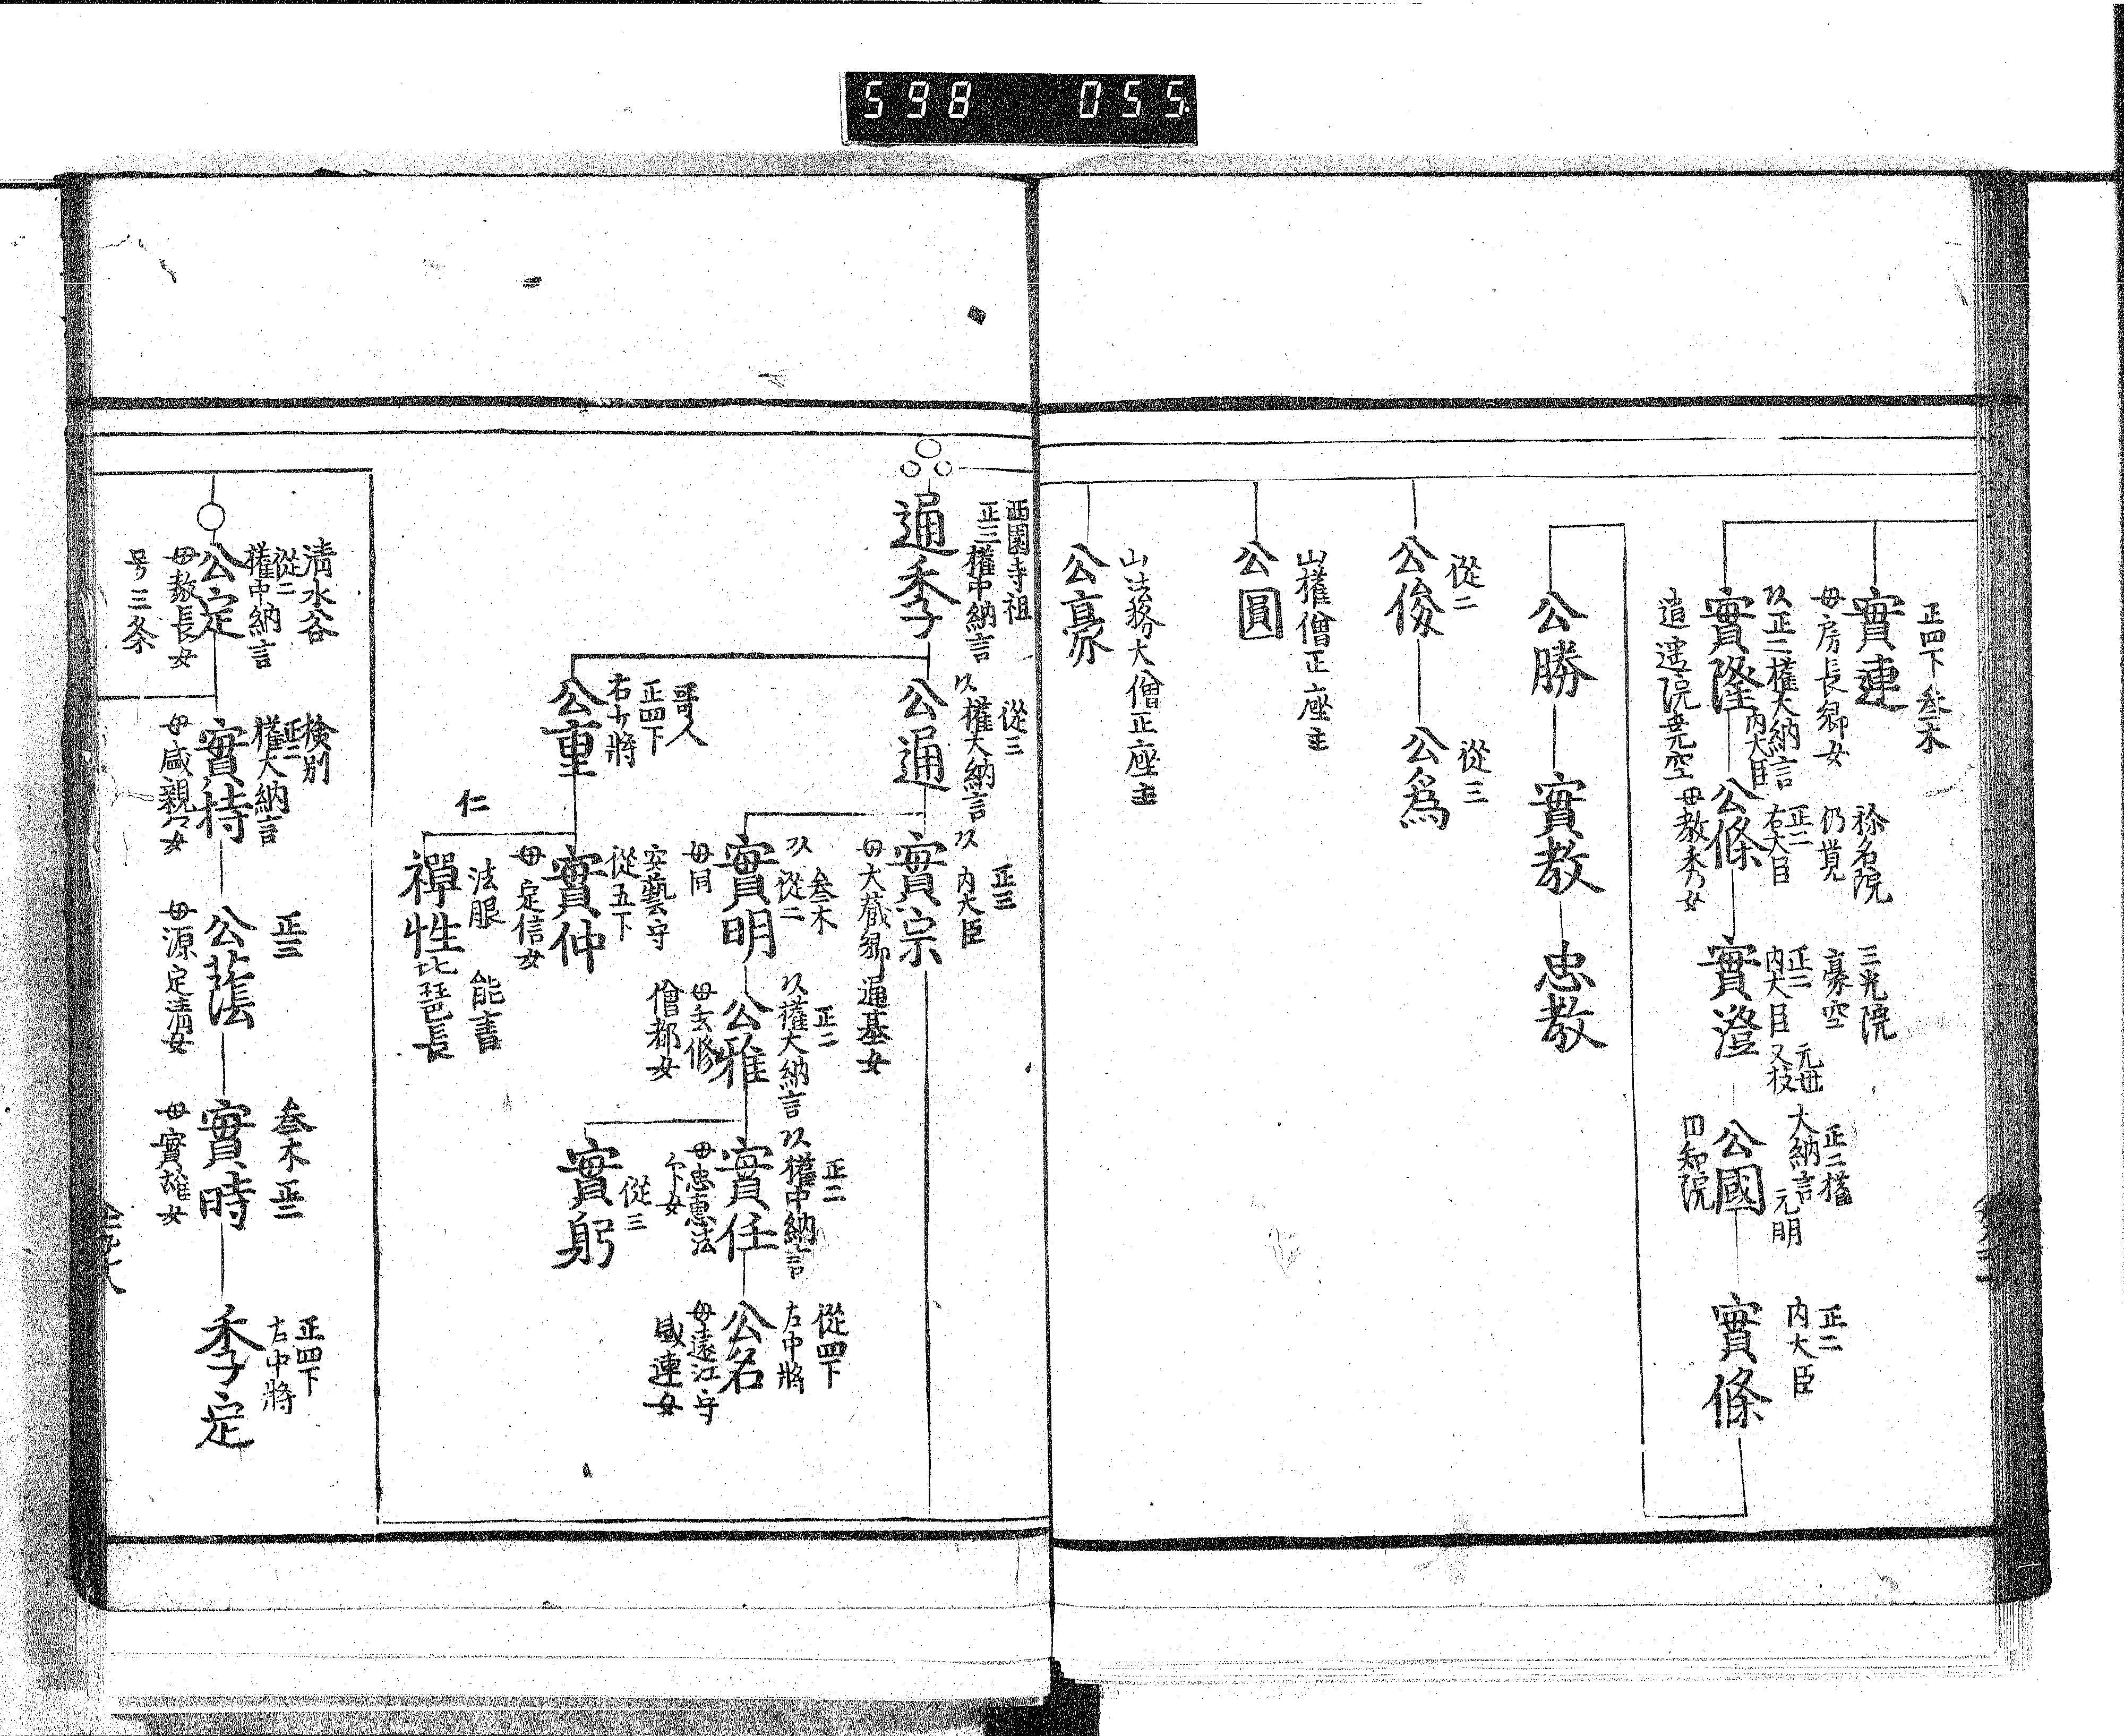 598 055
正四下 叅木
實連
母房長卿女
以正二權大納言
內大臣
實隆
逍遙院堯空
称名院
仍覚
正二
右大臣
公條
母教秀女
三光院
豪空
正二
内大臣
實澄
元世
又枝
正二權
大納言
元明
公國
円智院
正二
内大臣
實條
公勝
實教
忠教
從二
公俊
從三
公爲
山權僧正座主
公圓
山法務大僧正座主
公豪
西園寺祖
正三權中納言
通季
從三
以權大納言
公通
正三
以内大臣
實宗
母大藏卿通基女
叅木
以從二
實明
母同
正二
以權大納言
公雅
母玄修
僧都女
正二
以權中納言
實任
母忠惠法
從四下
左中將
公名
母遠江守
盛連女
從三
實躬
哥人
正四下
右少將
公重
安藝守
從五下
實仲
母定信女
仁
法眼 能書
禪性
比琶長
清水谷
從二
權中納言
公定
母教長女
号三条
檢別
正二
權大納言
實持
母咸親女
正三
公蔭
母源定清女
叅木 正三
實時
母實雄女
正四下
右中將
季定